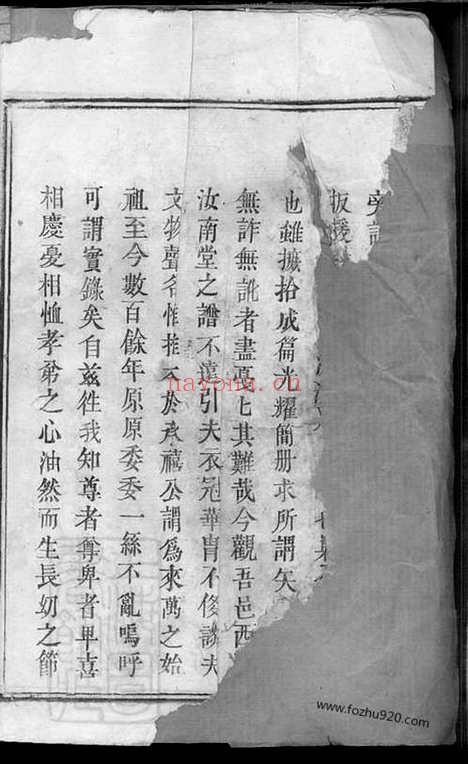 㫄記
扳援
也雖摭拾成篇光耀簡册求所謂矢
無詐無訛者盡戛乚其難哉今觀吾邑西
汝南堂之譜不攘引夫衣冠華胄不侈談夫
文物聲名惟推本於承禧公謂為來萬之始
祖至今數百餘年原原委委一絲不亂嗚呼
可謂實錄矣自茲徃我知尊者尊卑者卑喜
相慶憂相恤孝弟之心油然而生長幼之節
hayona.cn
www.fozhu920.com